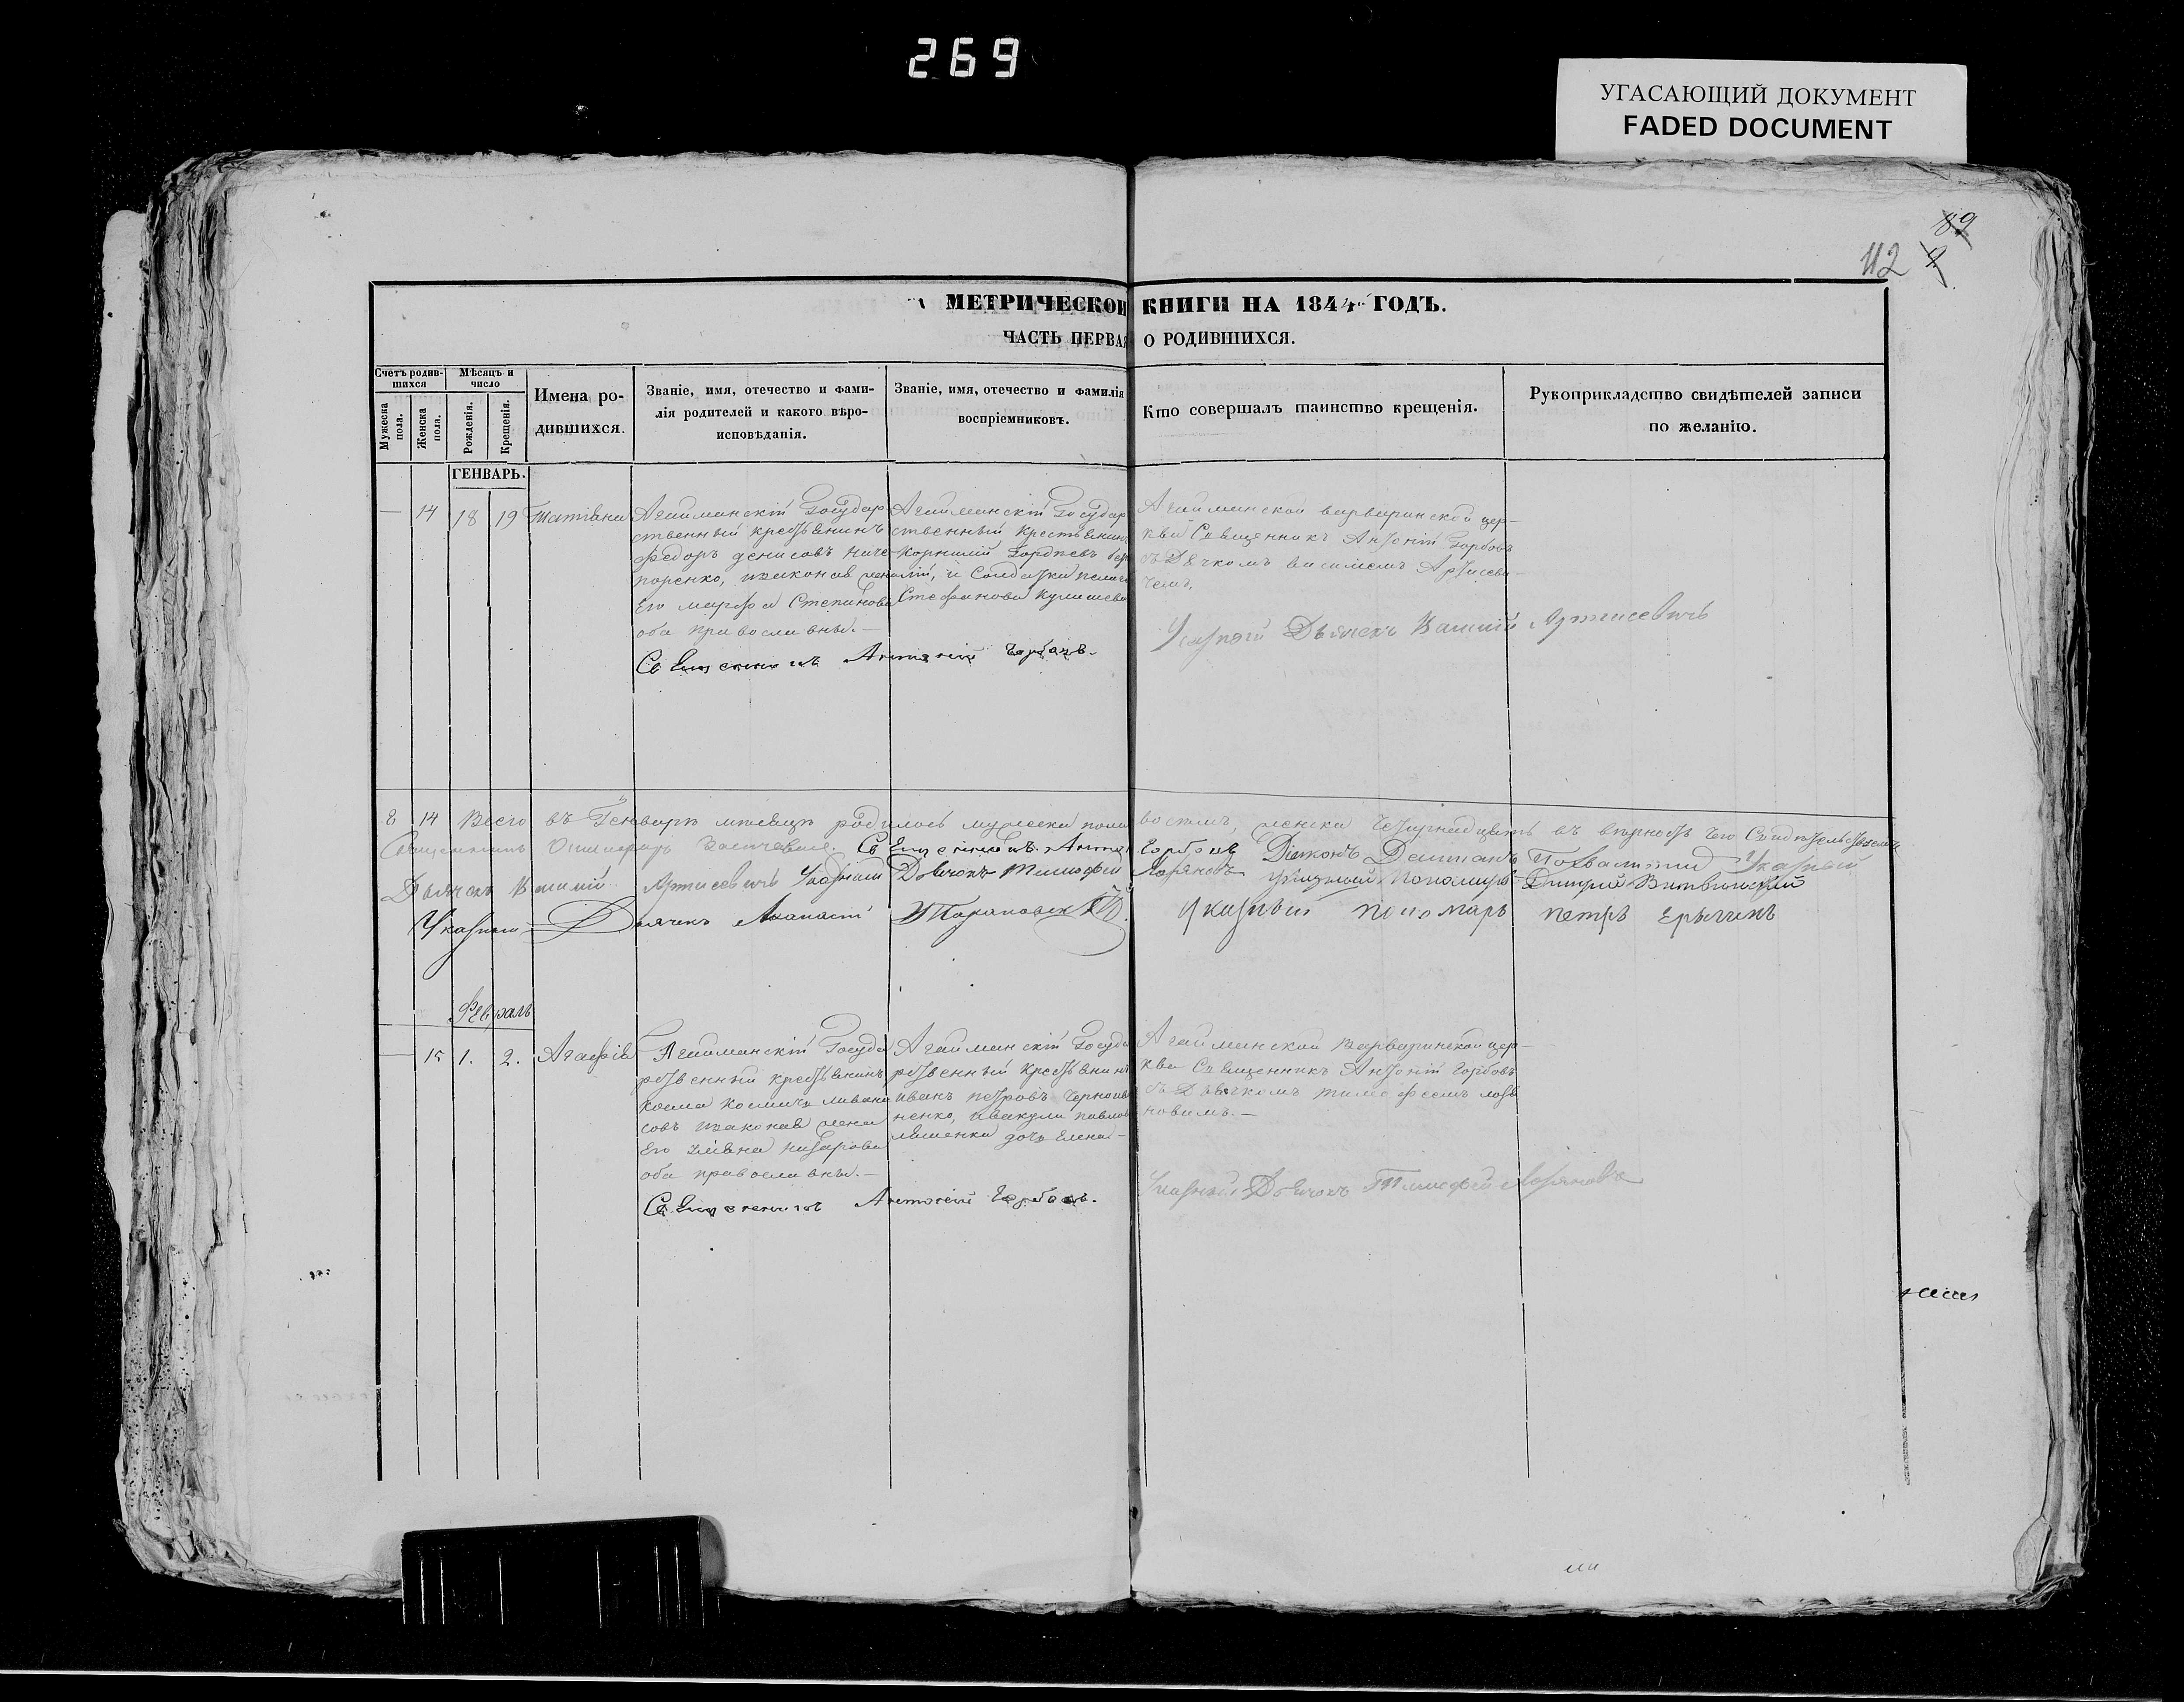 269
УГАСАЮЩИЙ ДОКУМЕНТ
FADED DOCUMENT
89
112 2
МЕТРИЧЕСКОЙ КНИГИ НА 1844 ГОДЪ.
ЧАСТЬ ПЕРВАЯ О РОДИВШИХСЯ.
Счетъ родив-
шихся
Мужеска пола.
Женска пола.
Мѣсяцъ и
число
Рожденія.
Крещенія.
Имена ро-
дившихся.
Званіе, имя, отечество и фами-
лія родителей и какого вѣро-
исповѣданія.
Званіе, имя, отечество и фамилія
воспріемниковъ.
Кто совершалъ таинство крещенія.
Рукоприкладство свидѣтелей записи
по желанію.
ГЕНВАРЬ.
— 14 18 19 Татіана
Агайманскій Государ
ственный крестьянинъ
Федоръ денисовъ ниче
поренко, изаконая жена
Его марфа Степанова
оба православны.—
Агайманскій Государ
ственный Крестьянинъ
Корнилій Гордѣевъ
и Солдатка
Стефанова Кулишева
Агайманской варваринской цер-
кви Священникъ Антоній Горбовъ
съ Дячкомъ василіемъ Артисеви-
чемъ.
Священникъ Антоній Горбовъ.
Указный Дьячекъ Василій Артисевичъ
8 14 Всего въ Генваре месяце родилось мужеска пола восемъ, женска четырнадцать въ верность чего Свидетельствуемъ
Священникъ Священникъ Антоній Горбовъ Діаконъ Даміанъ Указный
Дьячокъ Василій Артисевичъ Указный Дьячокъ Тимофей Лозановъ указный Пономарь Дмитрій Витвинскій
Указный Дьячекъ Афанасій Тарановскій Указный пономарь петръ Ерыгинъ
Февраль
— 15 1. 2. Агафія
Агайманскій Госуда
рственный крестьянинъ
косма космичъ ливана
совъ изаконая жена
Его назарова
оба православны.—
Агайманскій Госуда
рственный крестьянинъ
иванъ петровъ Черноив
ненко, иакули павлов
дочь Елена—
Агайманской Варваринской цер-
кви Священникъ Антоній Горбовъ
съ Дьячкомъ тимофеемъ лоза
новимъ.—
Священникъ Антоній Горбовъ.
Указный Дьячокъ Тимофей Лозановъ